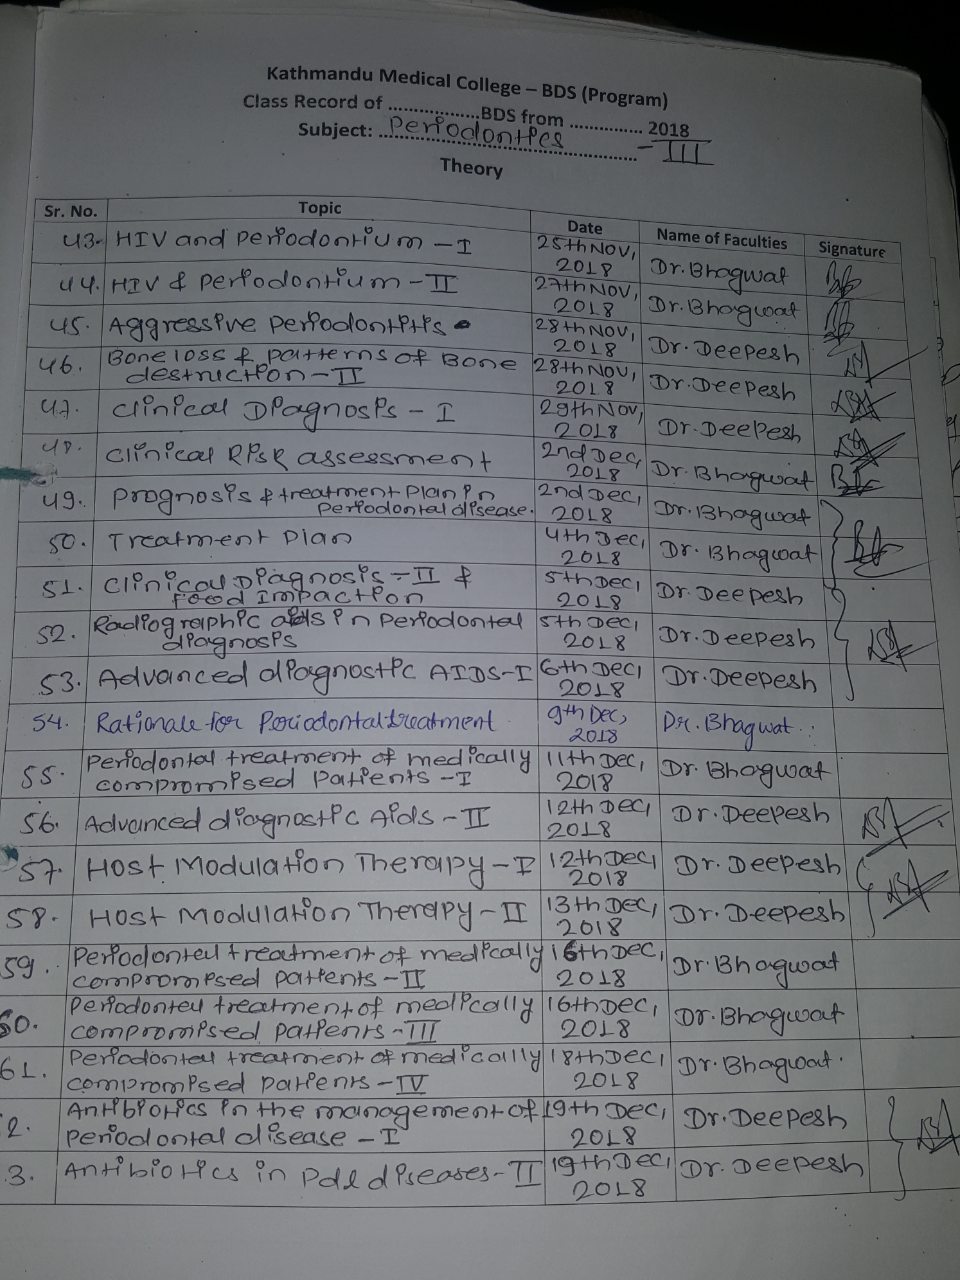 Kathmandu Medical College – BDS (Program)
Class Record of .................BDS from .............. 2018
Subject: Periodontics - III
Theory
Sr. No. Topic Date Name of Faculties Signature
43. HIV and Periodontium - I 25th Nov, 2018 Dr. Bhagwat
44. HIV & Periodontium - II 27th Nov, 2018 Dr. Bhagwat
45. Aggressive Periodontitis 28th Nov, 2018 Dr. Deepesh
46. Bone loss & patterns of Bone
destruction - II 28th Nov, 2018 Dr. Deepesh
47. Clinical Diagnosis - I 29th Nov, 2018 Dr. Deepesh
48. Clinical Risk assessment 2nd Dec, 2018 Dr. Bhagwat
49. Prognosis & treatment Plan in
Periodontal disease. 2nd Dec, 2018 Dr. Bhagwat
50. Treatment Plan 4th Dec, 2018 Dr. Bhagwat
51. Clinical Diagnosis - II &
Food Impaction 5th Dec, 2018 Dr. Deepesh
52. Radiographic aids in Periodontal
diagnosis 5th Dec, 2018 Dr. Deepesh
53. Advanced diagnostic AIDS - I 6th Dec, 2018 Dr. Deepesh
54. Rationale for Periodontal treatment 9th Dec, 2018 Dr. Bhagwat.
55. Periodontal treatment of medically
compromised Patients - I 11th Dec, 2018 Dr. Bhagwat
56. Advanced diagnostic Aids - II 12th Dec, 2018 Dr. Deepesh
57. Host Modulation Therapy - I 12th Dec, 2018 Dr. Deepesh
58. Host Modulation Therapy - II 13th Dec, 2018 Dr. Deepesh
59. Periodontal treatment of medically
compromised patients - II 16th Dec, 2018 Dr. Bhagwat
60. Periodontal treatment of medically
compromised patients - III 16th Dec, 2018 Dr. Bhagwat
61. Periodontal treatment of medically
compromised patients - IV 18th Dec, 2018 Dr. Bhagwat.
2. Antibiotics in the management of
Periodontal disease - I 19th Dec, 2018 Dr. Deepesh
3. Antibiotics in Pdl diseases - II 19th Dec, 2018 Dr. Deepesh